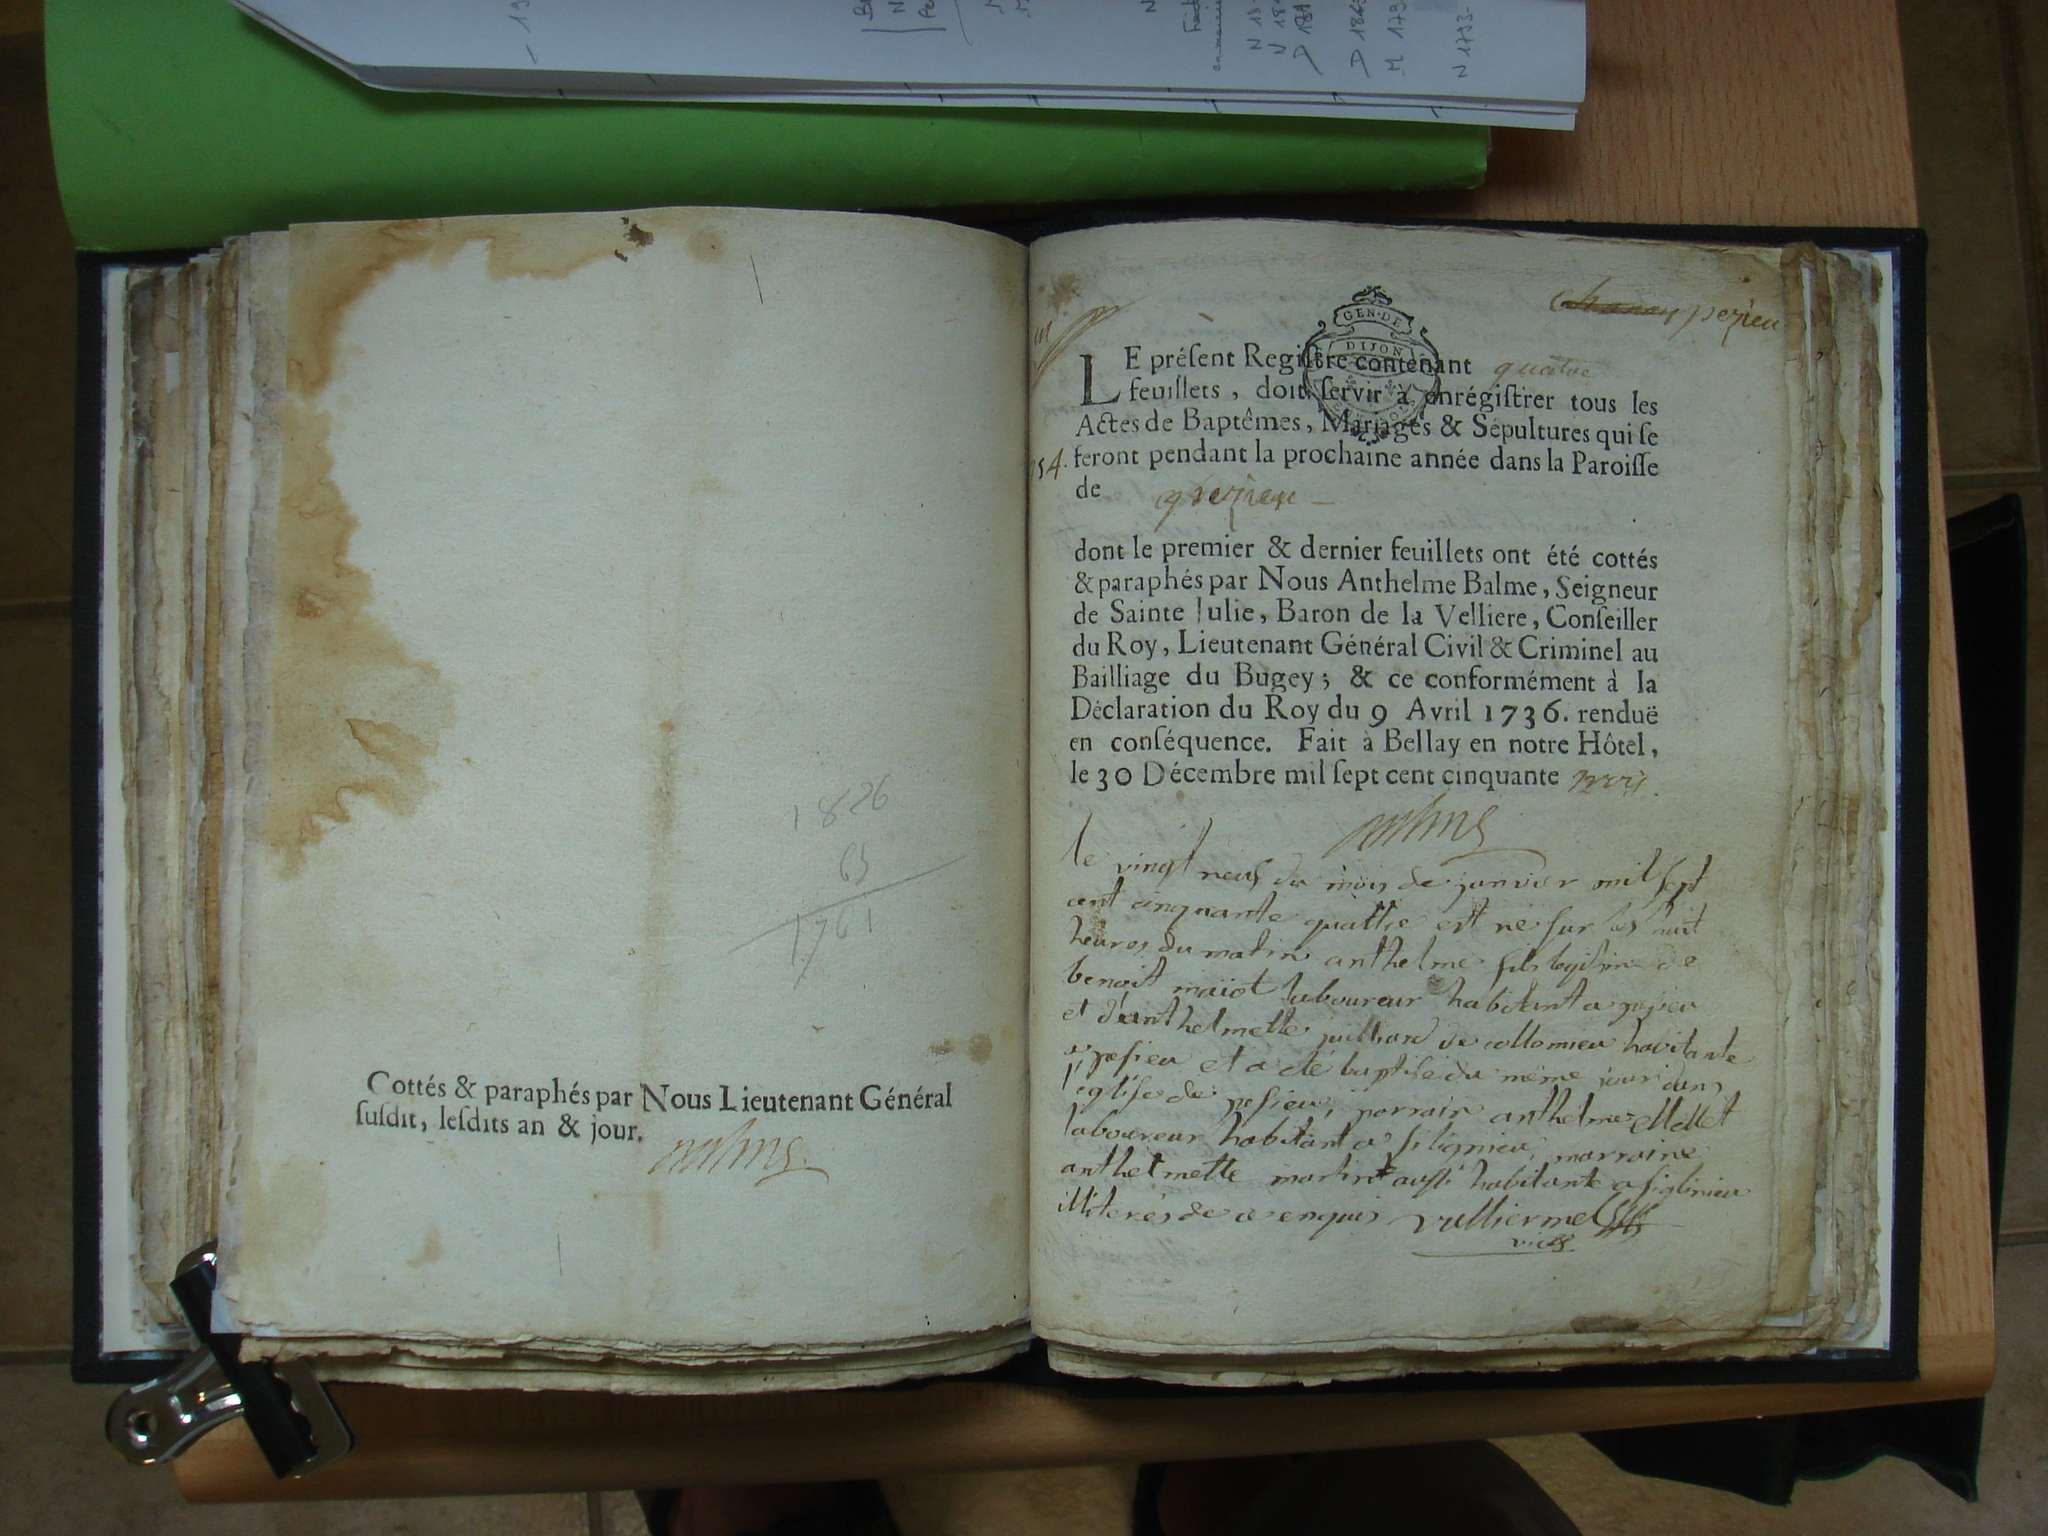 N 1733-
M 179
1826
65
1761
Cottés & paraphés par Nous Lieutenant Général
ſuſdit, leſdits an & jour.
GEN·DE
DIJON
chanay pezieu
LE préſent Regiſtre contenant quatre
feuillets, doit ſervir à enrégiſtrer tous les
Actes de Baptêmes, Mariages & Sépultures qui ſe
feront pendant la prochaine année dans la Paroiſſe
54.
de
dont le premier & dernier feuillets ont été cottés
& paraphés par Nous Anthelme Balme, Seigneur
de Sainte Julie, Baron de la Velliere, Conſeiller
du Roy, Lieutenant Général Civil & Criminel au
Bailliage du Bugey; & ce conformément à la
Déclaration du Roy du 9 Avril 1736. renduë
en conſéquence. Fait à Bellay en notre Hôtel,
le 30 Décembre mil ſept cent cinquante trois.
le vingt neuf du mois de janvier mil sept
cent cinquante quattre est né sur les huit
heures du matin anthelme fils legitime de
benoit maiot laboureur habitant a
et d'anthelmette juilliard de collomieu habitante
a pesieu et a été baptisé du même jour dans
l'eglise de pesieu, parrain anthelme Mollet
laboureur habitant a silignieu, marraine
anthelmette martin aussi habitante a siglinieu
illiterés de ce enquis vulliermet